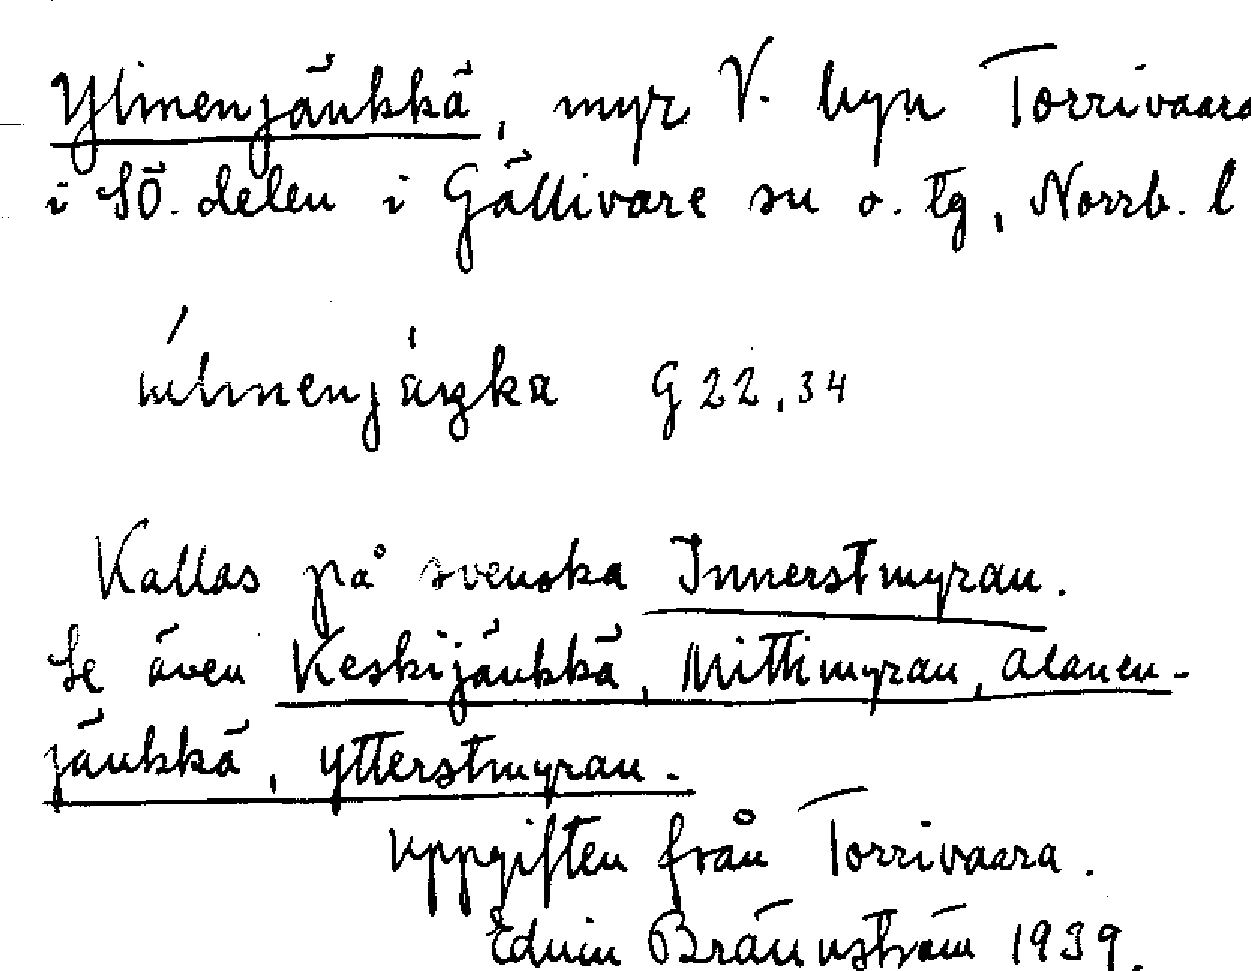 Ylinenjänkkä, myr V. byn Torrivaara
i SÖ. delen i Gällivare sn o. tg, Norrb. l
G 22, 34
Kallas på svenska Innerstmyran.
Se även Keskijänkkä, Mittimyran, Alanen-
jänkkä, Ytterstmyran.
Uppgiften från Torrivaara.
Edvin Brännström 1939.